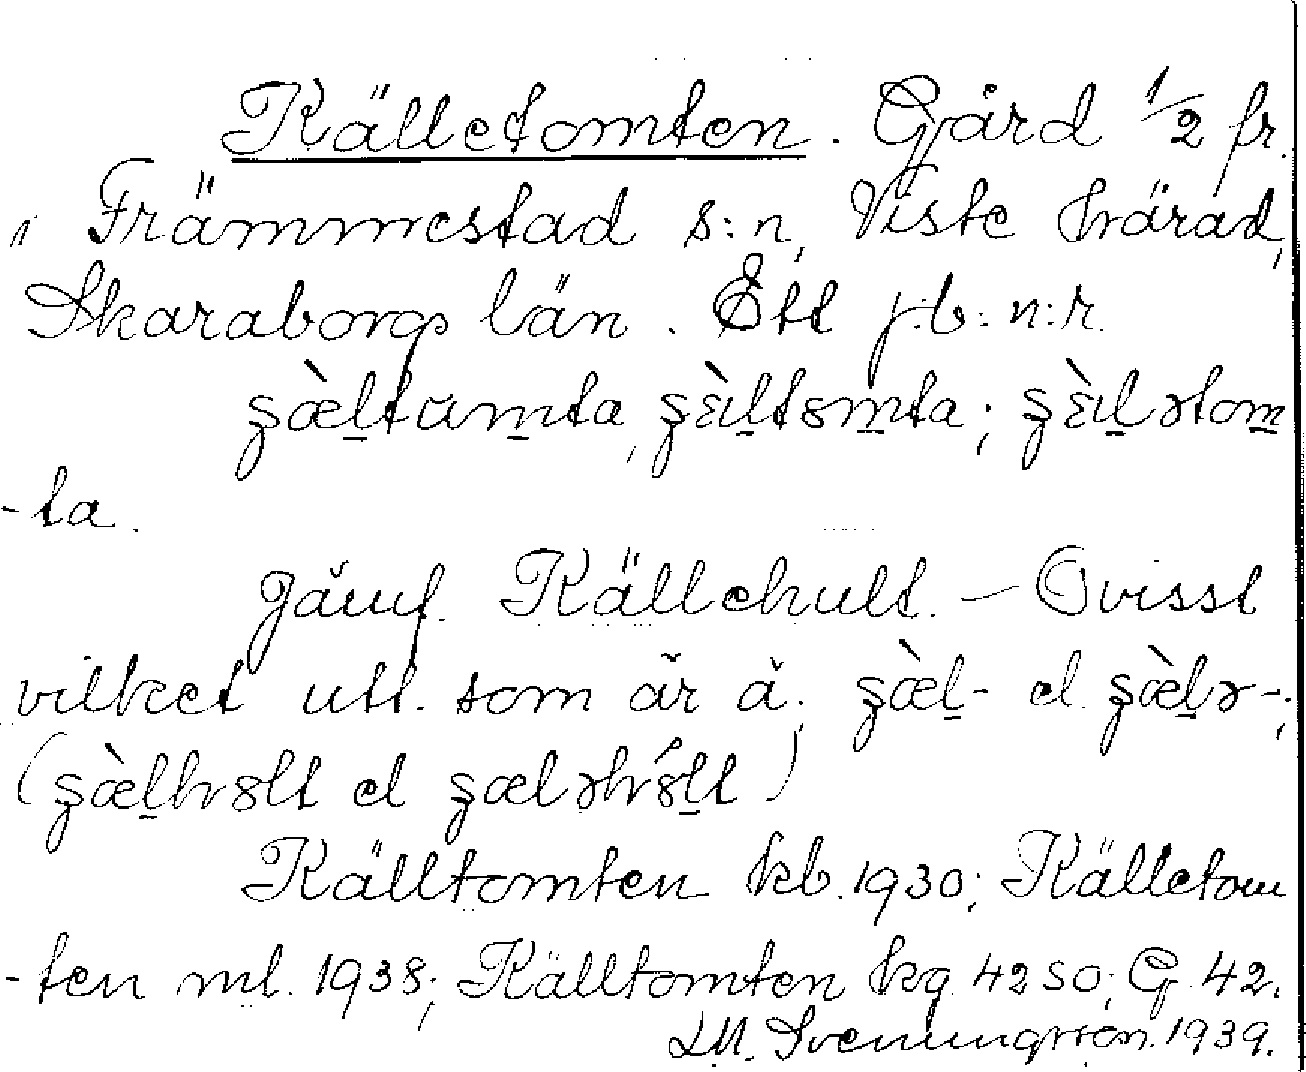 Källetomten. Gård 1/2 fr.
i Främmestad s:n, Viste härad,
Skaraborgs län. Ett j:b:n:r.
ʂæ̀ltamta, ʂɛ̀ıltɞmta; ʂɛ̀ılətom
-ta.
Jämf. Källehult. – Ovisst
vilket utt. som är ä; ʂæ̀l- el ʂæ̀lə-;
(ʂæ̀lhɞlt el ʂæləhɞ́lt)
Källtomten kb. 1930; Källetom
-ten ml. 1938; Källtomten kg 42 SO; G. 42.
I.M. Svenungsson. 1939.